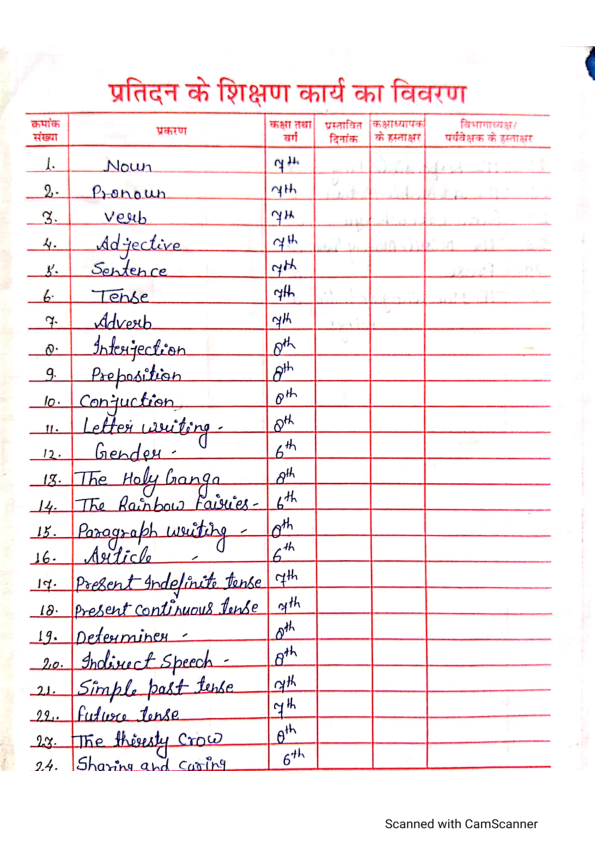 प्रतिदन के शिक्षण कार्य का विवरण
कमांक संख्या
प्रकरण
कक्षा तथा वर्ग
प्रस्तावित दिनांक
कक्षाध्यापक के हस्ताक्षर
विभागाध्यक्ष/ पर्यवेक्षक के हस्ताक्षर
1. Noun 7th
2. Pronoun 7th
3. Verb 7th
4. Adjective 7th
5. Sentence 7th
6. Tense 7th
7. Adverb 7th
8. Interjection 8th
9. Preposition 8th
10. Conjuction 8th
11. Letter writing - 8th
12. Gender - 6th
13. The Holy Ganga 8th
14. The Rainbow Fairies - 6th
15. Paragraph writing - 8th
16. Article - 6th
17. Present Indefinite tense 7th
18. Present continuous tense 7th
19. Determiner - 8th
20. Indirect Speech - 8th
21. Simple past tense 7th
22. Future tense 7th
23. The thirsty Crow 8th
24. Sharing and caring 6th
Scanned with CamScanner